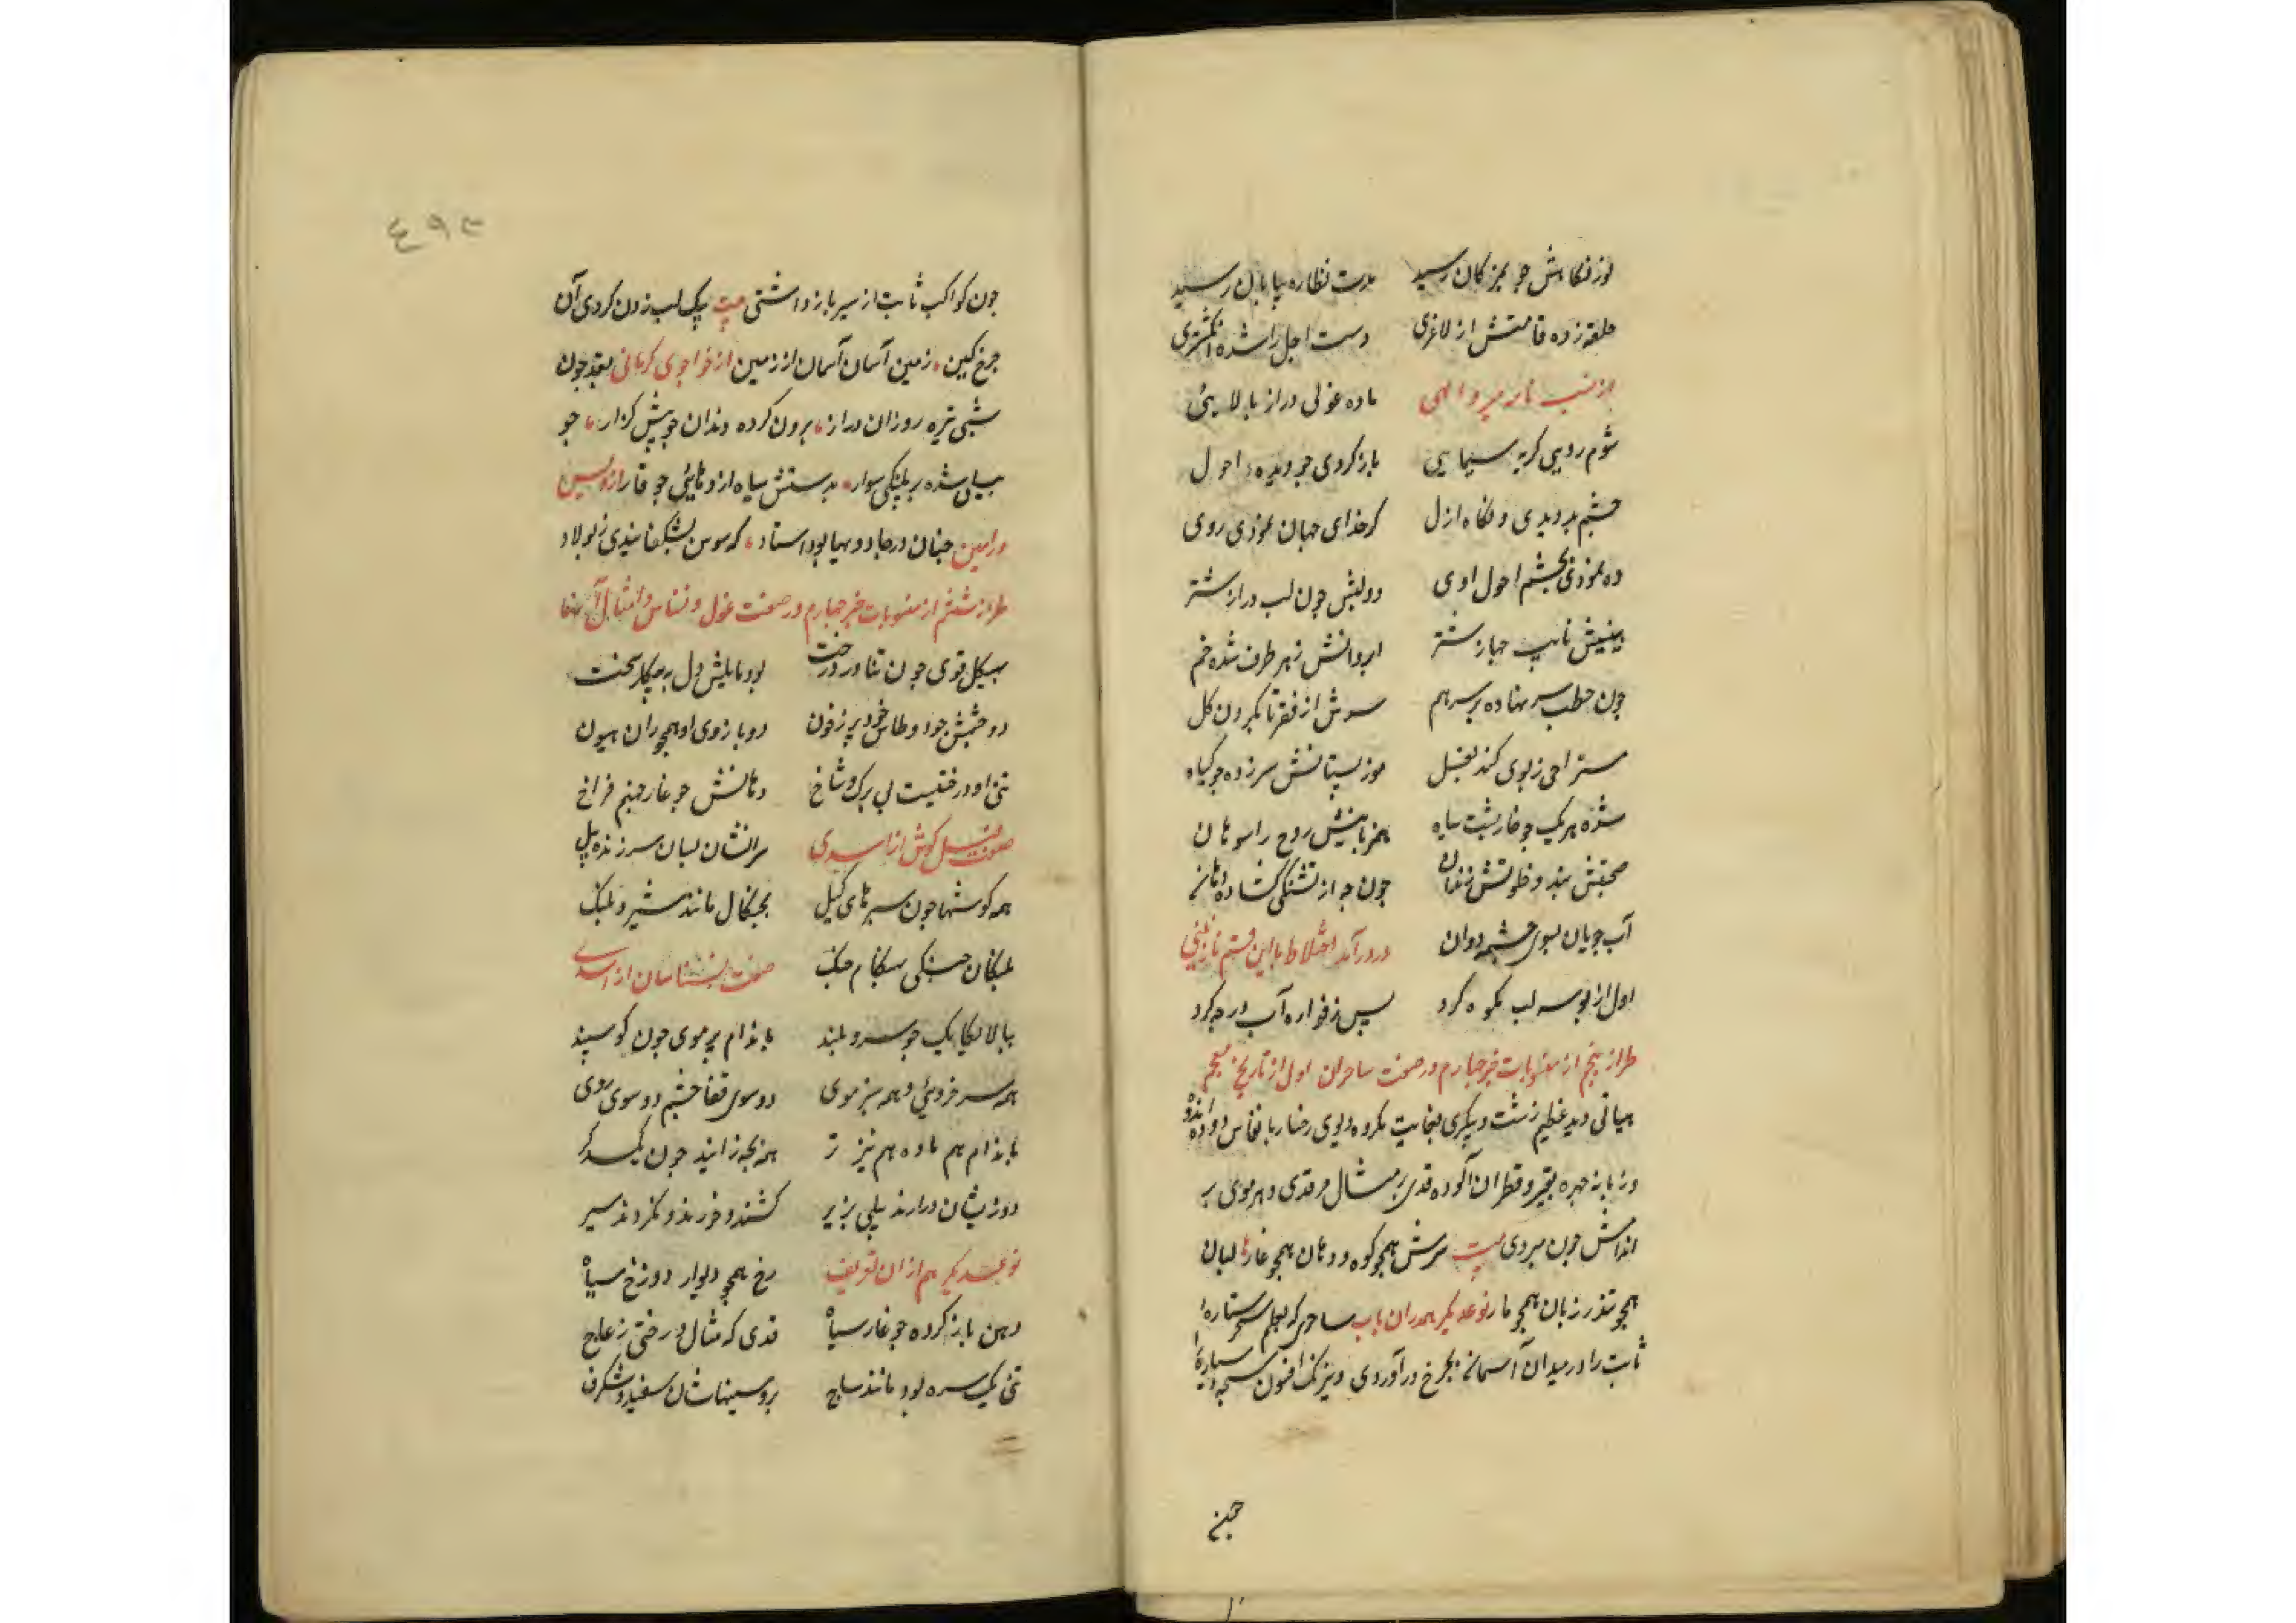 نور نگاهش چو بمژکان رسید مدت نظاره بپابان رسید
حلقه زده قامتش از لاغری دست اجل را شده انگشتری
ماده غولی دراز بالایئ
شوم رویی کریه سیمایی باز کردی چو دیده احول
چشم بد دیدی و نگاه ازل کر خدای جهان نمودی روی
ده نمودی بچشم احول اوی دو لبش چون لب دراز شتر
بینیش نایب جهاز شتر ابروانش ز هر طرف شده خم
چون حطب سر نهاده بر سر هم
موز پستانش سر زده چو کیاه
شده هر یک چو خارپشت سیاه همزبانیش روح را سوهان
صحبتش بند و خلوتش زندان چون چه از تشنگی گشاده دهان
آب جویان بسوی چشمه دوان
اول از بوسه لب بکوه کرد پس ز فواره آب در چه کرد
طراز پنجم از منسوبات چیز چهارم در صفت ساحران اول از تاریخ معجم
هیاتی دید عظیم زشت و پیکری بغایت مکروه دیوی رخسار بانقاس دوده اندوده
و زبانه چهره بقیر و قطران آلوده قدی بر مثال مرقدی و هر موی بر
اندامش چون مبردی بیت سرش همچو کوه و دهان همچو غار لبان
همچو تندر زبان همچو مار نوعدیگر همدران باب ساحری که بعلم سحر ستاره
ثابت را در میدان آسمان بچرخ در آوردی و نیرنک افسون سبعه سیاره را
چین
٤٩٣
چون کواکب ثابت از سیر باز داشتی بیت بیک لب زدن کردی آن
چرخ کین زمین آسمان آسمان از زمین از خواجوی کرمانی بعقد چون
شبی تیره روزان دراز برون کرده دندان چو پیش کراز چو
سیلی شده بر پلنگی سوار بدستش سیاه اژدهایئ چو قار از ویس
و رامین چنان در جادویها بود استاد که سوسن بشکفانیدی ز پولاد
طراز ششم از منسوبات چیز چهارم در صفت غول و نسناس و امثال آنها
بهیکل قوی چون تناور درخت بود مایلش دل به پیکار سخت
دو چشمش چو دو طاس خود پر ز خون دو بازوی او همچو ران هیون
تن او درختیست بی برک و شاخ دهانش چو غار جهنم فراخ
صفت فیل کوش از اسدی سرانشان بسان سر زنده پیل
همه کوشها چون سپرهای کیل بچنگال مانند شیر و پلنک
پلنکان جنکی بهنکام جنک صفت نسناسان از اسدی
ببالا یکایک چو سرو بلند باندام پر موی چون کوسپند
همه سرخ روی و همه سبز موی دو سوی قفا چشم دو سوی روی
باندام هم ماده هم نیز نر همه بچه زایند چون یکدگر
دوزیشان درارند پیلی بزیر کشند و خورند و نکردند سیر
نوعدیگر هم ازان تعریف رخ همچو دیوار دوزخ سیاه
دهن باز کرده چو غار سیاه قدی که مثال درختی ز عاج
تن یک سره بود مانند ساج برو سینهاشان سفید و شگرف